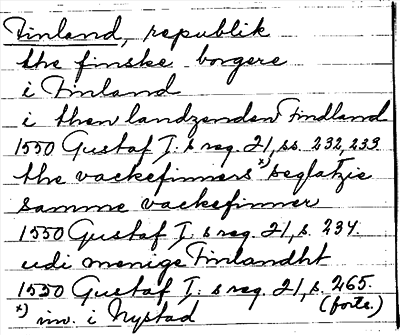 Finland, republik
the finske borgere
i Finland
i then landzenden Findland
1550 Gustaf I: s reg. 21, ss. 232, 233
the vackefinners *) seglatzie
samme vackefinner
1550 Gustaf I: s reg. 21, s. 234.
udi menige Finlandht
1550 Gustaf I: s reg. 21, s. 265.
*) inv. i Nystad (forts.)